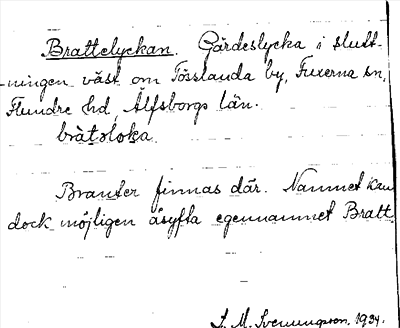 Brattelyckan. Gärdeslycka i slutt-
-ningen väst om Tösslanda by, Fuxerna sn,
Flundre hd, Älfsborgs län.
bràtəloka.
Branter finnas där. Namnet kan
dock möjligen åsyfta egennamnet Bratt.
S. M. Svenungsson, 1934.